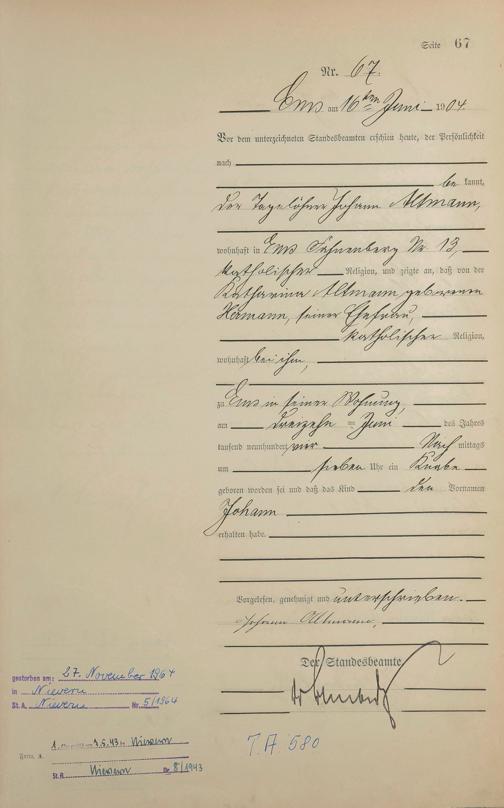 Seite 67
Nr. 67.
Ems am 16ten Juni 1904.
Vor dem unterzeichneten Standesbeamten erschien heute, der Persönlichkeit
nach
be kannt,
der Tagelöhner Johann Altmann,
wohnhaft in Ems Nr 13,
katholischer Religion, und zeigte an, daß von der
Katharina Altmann geborenen
Hermann, seiner Ehefrau,
katholischer Religion,
wohnhaft bei ihm,
zu Ems in seiner Wohnung,
am dreizehn = Juni des Jahres
tausend neunhundert vier Nach mittags
um sieben Uhr ein Knabe
geboren worden sei und daß das Kind den Vornamen
Johann
erhalten habe.
Vorgelesen, genehmigt und unterschrieben.
Johann Altmann,
Der Standesbeamte.
gestorben am: 27. November 1964
in Nievern
St. A. Nievern Nr. 5/1964
1. 1.5.43 in Nievern
St.A. Nievern Nr. 8/1943
T.A 580